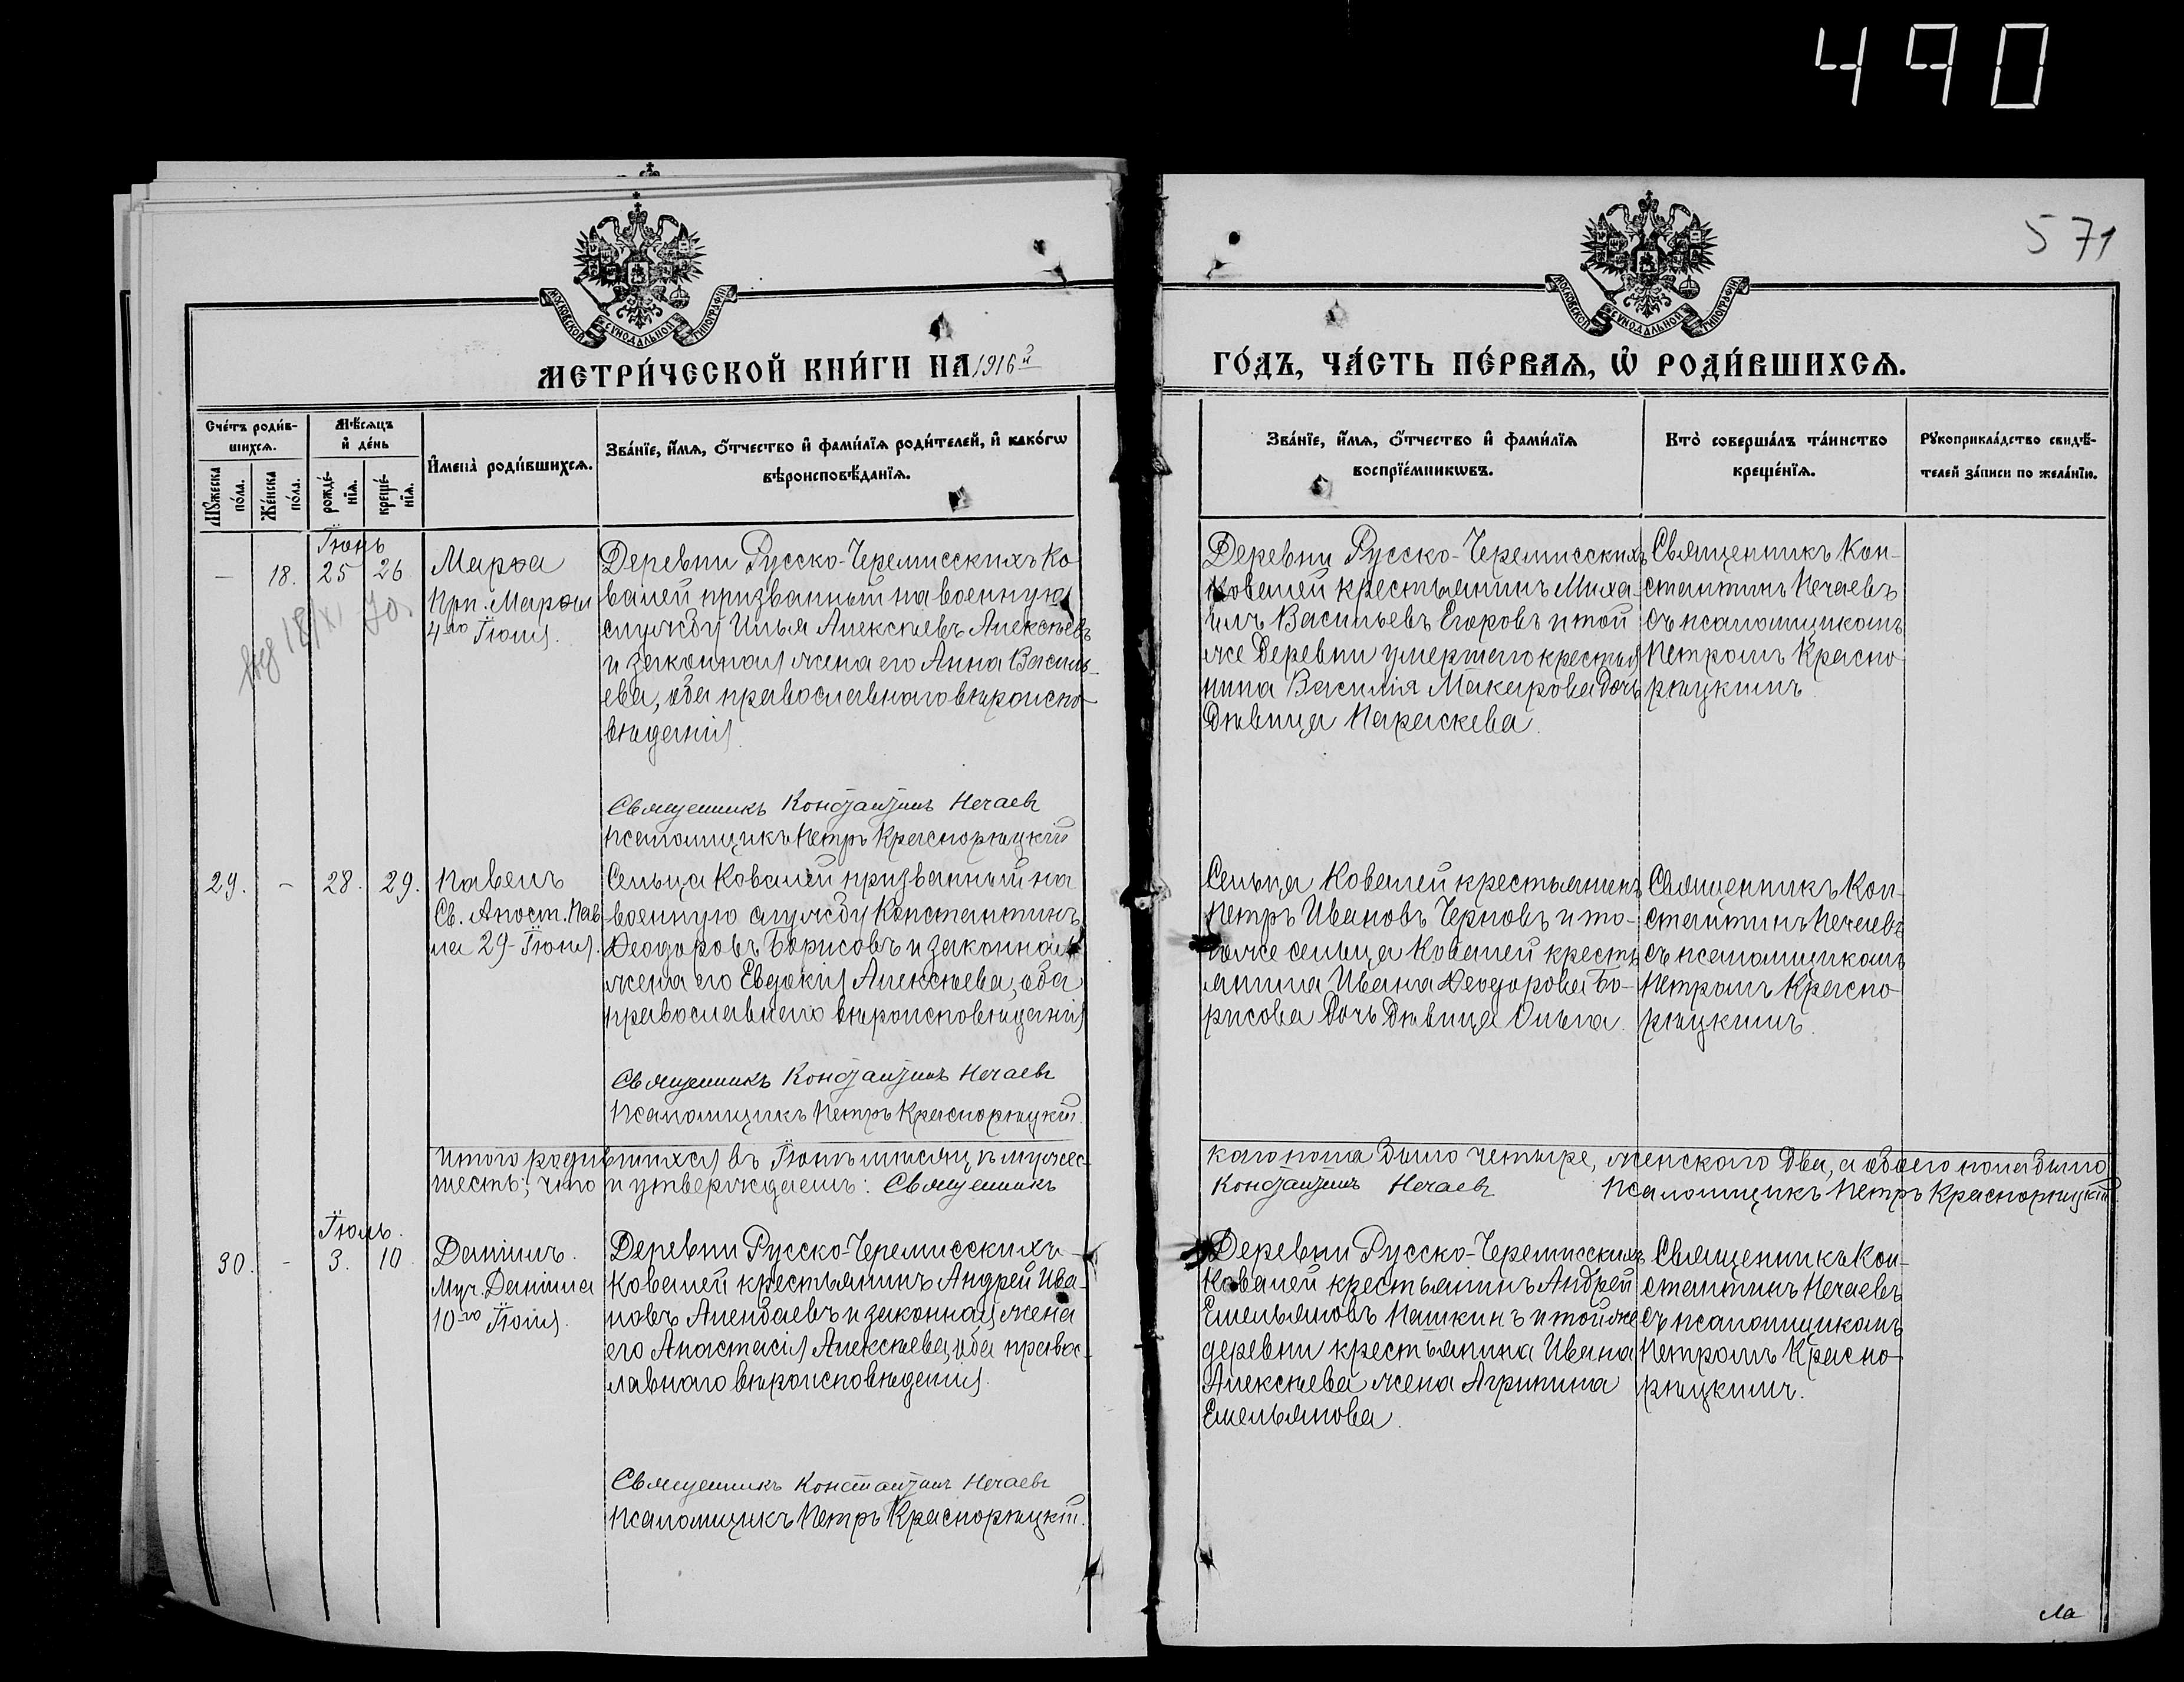 490
571
МОСКОВСКОЙ СѴНОДАЛЬНОЙ ТИПОГРАФІИ
МОСКОВСКОЙ СѴНОДАЛЬНОЙ ТИПОГРАФІИ
МЕТРИ́ЧЕСКОЙ КНИ́ГИ НА 1916й
ГО́ДЪ, ЧА́СТЬ ПЕ́РВАѦ, Ѡ҆ РОДИ́ВШИХСѦ.
Сче́тъ роди́в-
шихсѧ.
Мꙋ́жеска
по́ла.
Же́нска
по́ла.
Мѣ́сѧцъ
и҆ де́нь
рожде́-
нїѧ.
креще́-
нїѧ.
И҆мена̀ роди́вшихсѧ.
Зва́нїе, и҆́мѧ, ѻ҆́тчество и҆ фами́лїѧ роди́телей, и҆ како́гѡ
вѣроисповѣ́данїѧ.
Зва́нїе, и҆́мѧ, ѻ҆́тчество и҆ фами́лїѧ
воспрїе́мникѡвъ.
Кто̀ соверша́лъ та́инство
креще́нїѧ.
Рꙋкоприкла́дство свидѣ́-
телей за́писи по жела́нїю.
Іюнь
— 18. 25 26
Марѳа
Прп. Марѳы
4го Іюля.
Деревни Русско-Черемисскихъ Ко-
валей призванный на военную
службу Илья Алексѣевъ Алексѣевъ
и законная жена его Анна Василь-
ева, оба православнаго вѣроиспо-
вѣданія.
Священникъ Константинъ Нечаевъ
Псаломщикъ Петръ Краснорѣцкій
Деревни Русско-Черемисскихъ
Ковалей крестьянинъ Миха-
илъ Васильевъ Егоровъ и той
же деревни умершаго крестья
нина Василія Макарова дочь
дѣвица Параскева.
Священникъ Кон-
стантинъ Нечаевъ
съ псаломщикомъ
Петромъ Красно-
рѣцкимъ.
29. - 28. 29.
Павелъ
Св. Апост. Пав-
ла 29 Іюня.
Сельца Ковалей призванный на
военную службу Константинъ
Ѳеодоровъ Борисовъ и законная
жена его Евдокія Алексѣева, оба
православнаго вѣроисповѣданія
Священникъ Константинъ Нечаевъ
Псаломщикъ Петръ Краснорѣцкій.
Сельца Ковалей крестьянинъ
Петръ Ивановъ Черновъ и то-
гоже сельца Ковалей кресть-
янина Ивана Ѳеодорова Бо-
рисова дочь дѣвица Ольга.
Священникъ Кон-
стантинъ Нечаевъ
съ псаломщикомъ
Петромъ Красно-
рѣцкимъ.
Итого родившихся въ Іюнѣ мѣсяцѣ мужес-
каго пола было четыре, женскаго два, а обоего пола было
шесть; что и утверждаемъ: Священникъ
Константинъ Нечаевъ Псаломщикъ Петръ Краснорѣцкій
Іюль.
30. - 3. 10.
Даніилъ.
Муч. Даніила
10го Іюля.
Деревни Русско-Черемисскихъ
Ковалей крестьянинъ Андрей Ива-
новъ Алендаевъ и законная жена
его Анастасія Алексѣева, оба правос-
лавнаго вѣроисповѣданія.
Священникъ Константинъ Нечаевъ
Псаломщикъ Петръ Краснорѣцкій.
Деревни Русско-Черемисскихъ
Ковалей крестьянинъ Андрей
Емельяновъ Пашкинъ и той же
деревни крестьянина Ивана
Алексѣева жена Агрипина
Емельянова.
Священникъ Кон-
стантинъ Нечаевъ
съ псаломщикомъ
Петромъ Красно-
рѣцкимъ.